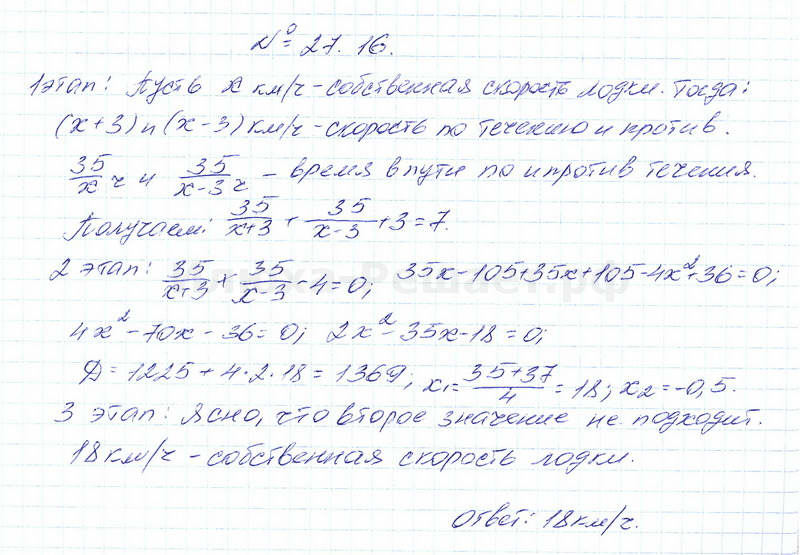 № 27.16.
1 этап: Пусть x км/ч - собственная скорость лодки. Тогда:
(x+3) и (x-3) км/ч - скорость по течению и против.
35/x ч и 35/x-3 ч - время в пути по и против течения.
Получаем: 35/x+3 + 35/x-3 + 3 = 7.
2 этап: 35/x+3 + 35/x-3 - 4 = 0; 35x - 105 + 35x + 105 - 4x² + 36 = 0;
4x² - 70x - 36 = 0; 2x² - 35x - 18 = 0;
Д = 1225 + 4·2·18 = 1369; x₁ = 35+37/4 = 18; x₂ = -0,5.
3 этап: Ясно, что второе значение не подходит.
18 км/ч - собственная скорость лодки.
Ответ: 18 км/ч.